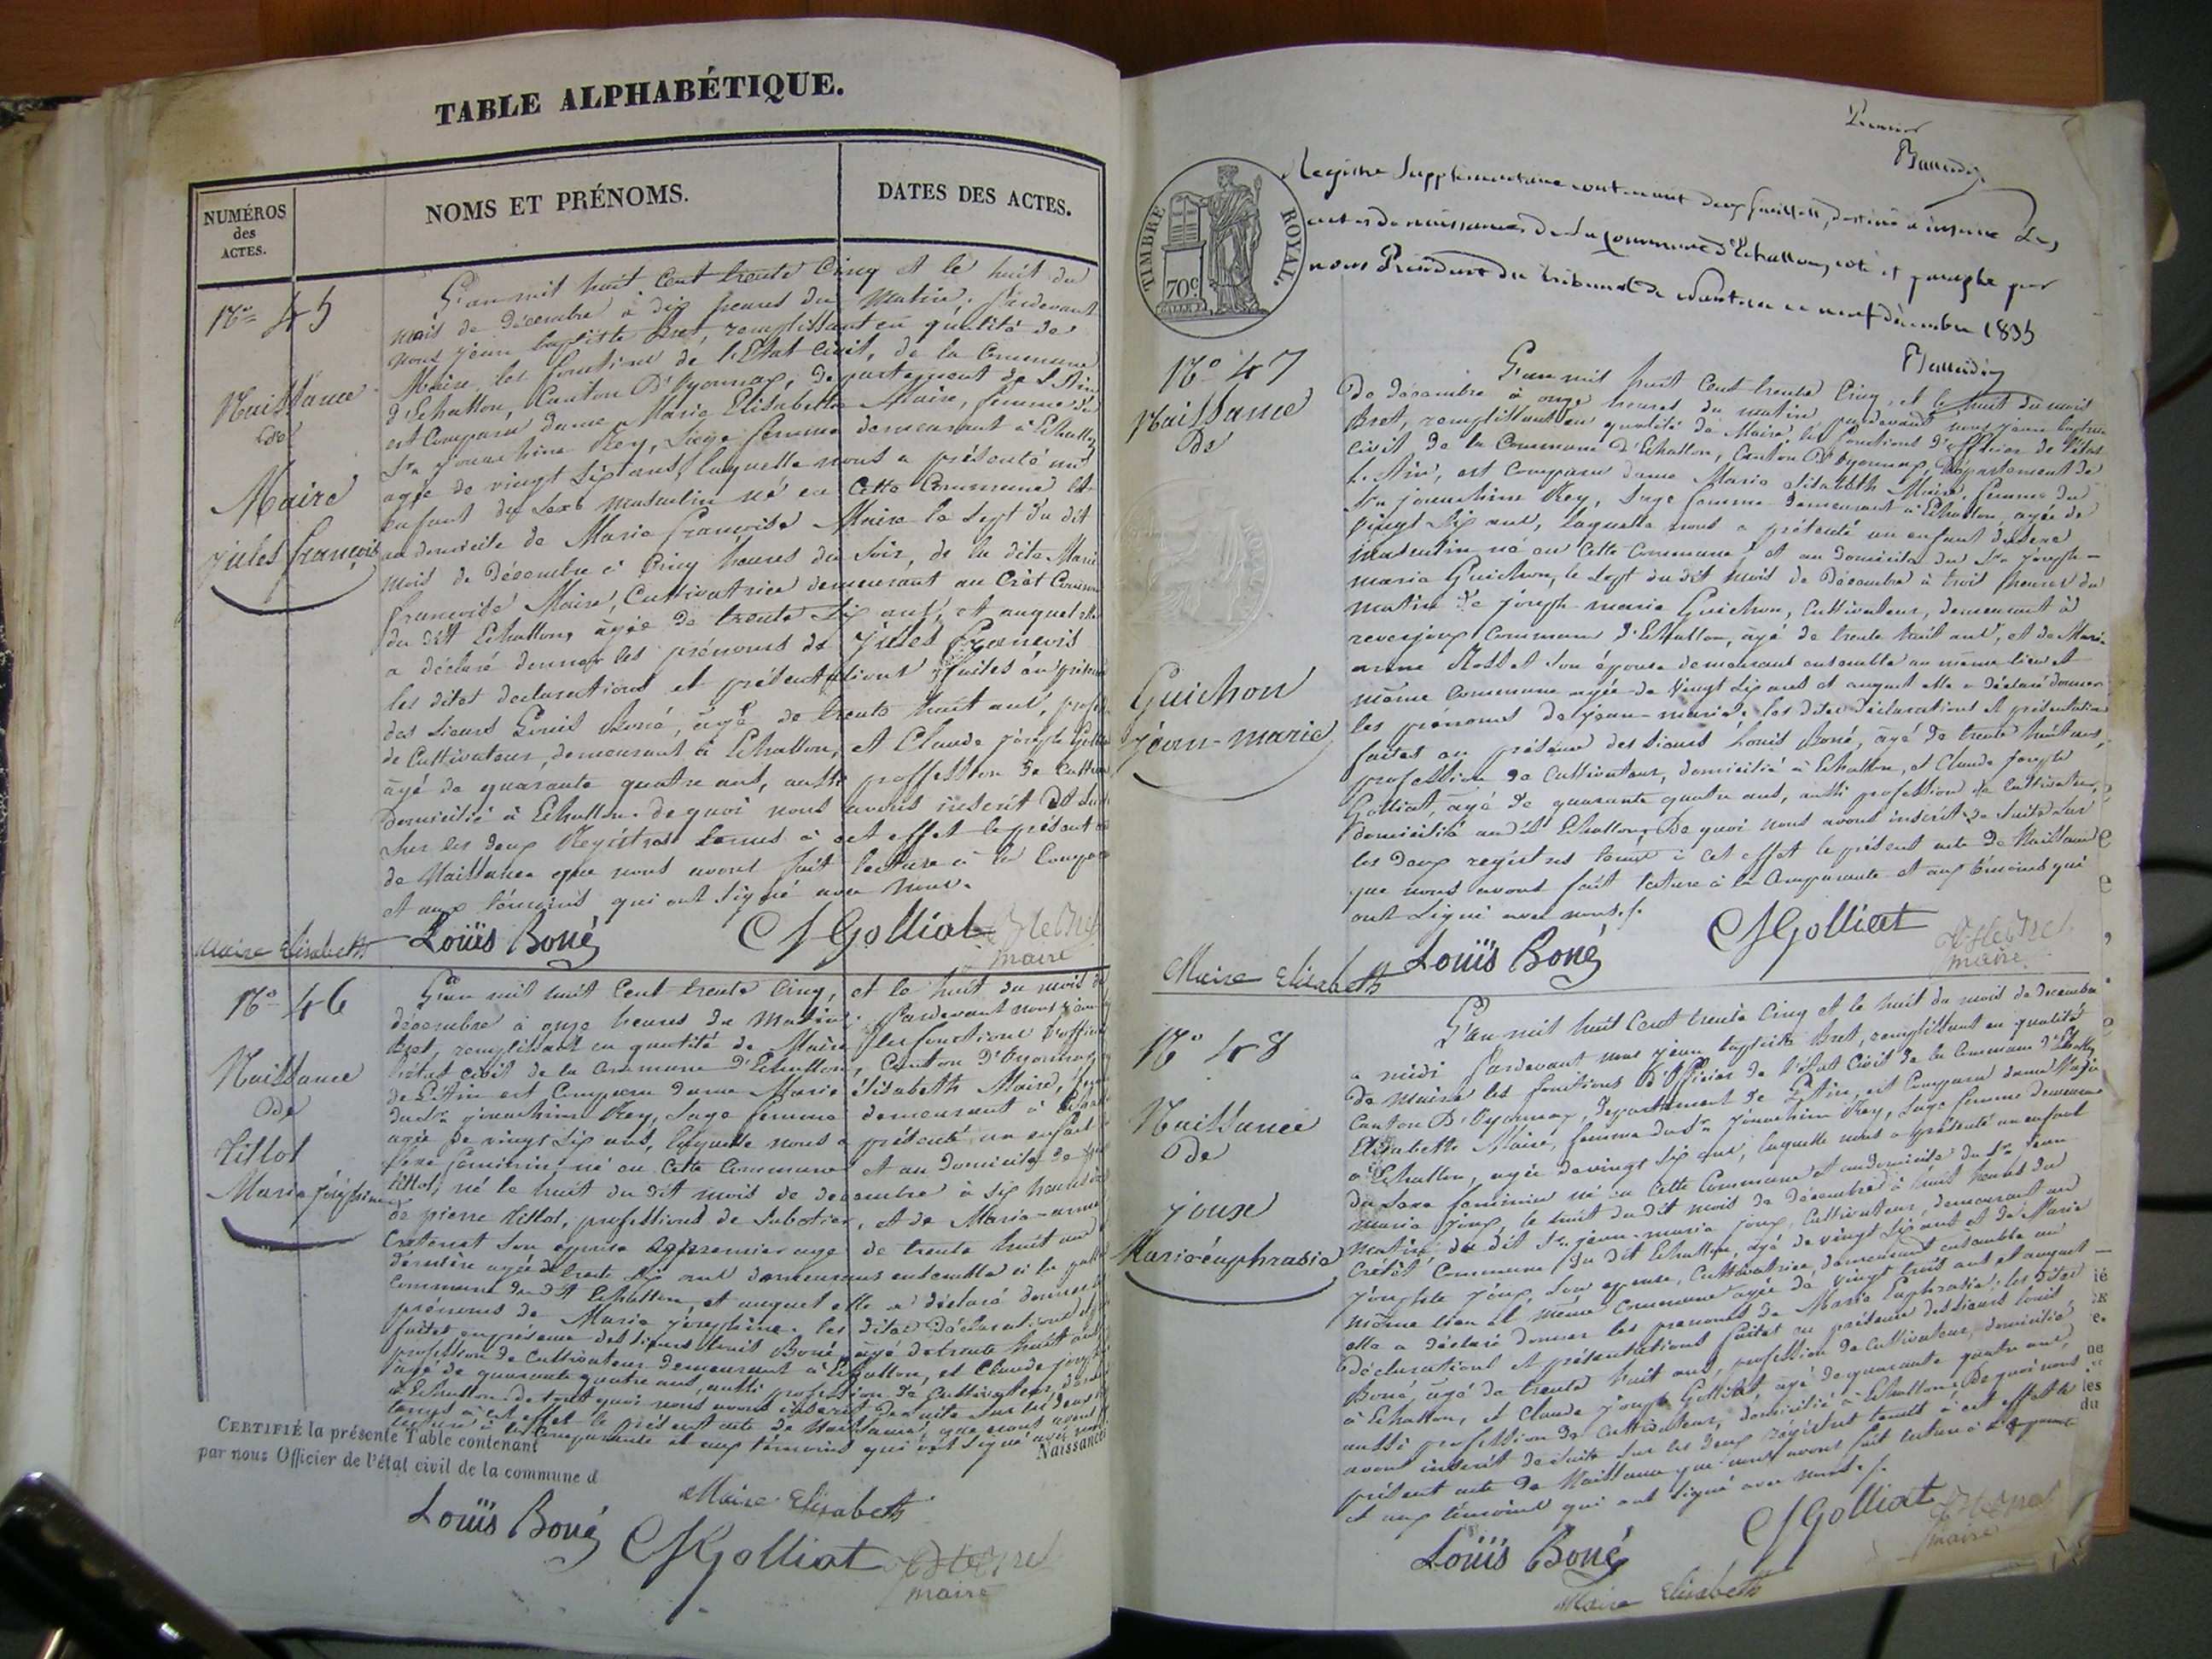 TABLE ALPHABÉTIQUE.
NUMÉROS
des
ACTES.
NOMS ET PRÉNOMS.
DATES DES ACTES.
N° 45
Naissance
de
Maire
jules françois
L'an mil huit Cent trente Cinq et le huit du
mois de Décembre à dix heures du Matin. Pardevant
nous jean baptiste Bret, remplissant en qualité de
Maire les fonctions de l'Etat Civil, de la Commune
d'Echallon, Canton D'Oyonnax, département de L'Ain
est Comparu dame Marie Elisabeth Maire, femme du
Sr jouachine Rey, Sage femme demeurant à Echallon
agée de vingt Six ans, laquelle nous a présenté un
enfant du Sexe masculin né en Cette Commune et
au domicile de Marie françoise Maire le Sept du dit
mois de Décembre à Cinq heures du Soir, de la dite Marie
françoise Maire, Cultivatrice demeurant au Crêt Commune
du dit Echallon, agée de trente Six ans, et auquel elle
a déclaré donner les prénoms de Jules François
les dites declarations et présentations faites en présence
des Sieurs Louis Boné, agé de trente huit ans, profession
de Cultivateur, demeurant à Echallon, et Claude Joseph Golliat
agé de quarante quatre ans, aussi proffession de Cultivateur
domicilié à Echallon. de quoi nous avons inscrit de suite
Sur les deux Registres tenus à cet effet le présent acte
de Naissance que nous avons fait lecture à la Comparante
et aux témoins qui ont Signé avec Nous.
Maire Elisabeth Louis Boné CJ Golliat
maire
N° 46
Naissance
de
Tillot
Marie joséphine
L'an mil huit Cent trente Cinq, et le huit du mois de
décembre à onze heures du Matin. Pardevant nous jean
Bret, remplissant en qualité de Maire les fonctions d'officier
l'état civil de la Commune d'Echallon, Canton d'Oyonnax
de L'Ain est Comparu dame Marie Elisabeth Maire, femme
du Sr jouachine Rey, Sage femme demeurant à Echallon
agée de vingt Six ans, laquelle nous a présenté un enfant
Sexe feminin né en Cette Commune et au domicile de
Tillot, né le huit du dit mois de décembre à Six heures
de pierre Tillot, professions de Sabotier, et de Marie-anne
son épouse premier agé de trente huit ans
dernière agée de trente Six ans demeurans ensemble à la
Commune du dit Echallon, et auquel elle a déclaré donner
prénoms de Marie josephine. les dites Déclarations
faites en présence des Sieurs Louis Boné agé de trente huit ans
profession de Cultivateur demeurant à Echallon, et Claude joseph
agé de quarante quatre ans, aussi profession de Cultivateur,
à Echallon. de tout quoi nous avons inscrit de suite Sur les deux
tenus à cet effet le présent acte de Naissance que nous avons
lecture à la Comparante et aux témoins qui ont Signé avec nous
CERTIFIÉ la présente Table contenant
Naissances
par nous Officier de l'état civil de la commune d
Maire Elisabeth
Louis Boné CJ Golliat
maire
Premier
Registre Supplémentaire contenant deux feuillets, destiné à inscrire Les
actes de naissances de La Commune d'Echallon, coté et paraphé par
nous Président du tribunal de Nantua ce neuf décembre 1835
TIMBRE ROYAL.
70c
N° 47
Naissance
de
Guichon
jean-marie
L'an mil huit Cent trente Cinq, et le huit du mois
de décembre à onze heures du matin pardevant nous jean baptiste
Bret, remplissant en qualité de Maire les fonctions d'officier de l'état
civil de la Commune d'Echallon, Canton D'Oyonnax, Département de
L'Ain, est Comparu dame Marie Elisabeth Maire, femme du
Sr jouachine Rey, Sage femme demeurant à Echallon, agée de
vingt Six ans, laquelle nous a présenté un enfant du Sexe
masculin né en Cette Commune et au domicile du Sr joseph-
marie Guichon, le Sept du dit mois de Décembre à trois heures du
matin de joseph-marie Guichon, Cultivateur, demeurant à
Commune d'Echallon, agé de trente huit ans, et de Marie
anne son épouse demeurant ensemble au même lieu et
même Commune agée de vingt Six ans et auquel elle a déclaré donner
les prénoms de jean-marie. les dites déclarations et présentations
faites en présence des Sieurs Louis Boné, agé de trente huit ans,
profession de Cultivateur, domicilié à Echallon, et Claude Joseph
Golliat, agé de quarante quatre ans, aussi profession de Cultivateur,
domicilié au dit Echallon. De quoi nous avons inscrit de Suite Sur
les deux registres tenus à cet effet le présent acte de Naissance
que nous avons fait lecture à la Comparante et aux témoins qui
ont Signé avec nous./.
Maire Elisabeth Louis Boné CJ Golliat
maire
N° 48
Naissance
de
joux
Marie éuphrasie
L'an mil huit Cent trente Cinq et le huit du mois de decembre
à midi Pardevant nous jean baptiste Bret, remplissant en qualité
de maire les fonctions d'Officier de l'état Civil de la Commune d'Echallon
Canton D'Oyonnax, Département de L'Ain, est Comparu dame Marie
Elisabeth Maire, femme du Sr Jouachine Rey, Sage femme demeurant
à Echallon, agée de vingt Six ans, laquelle nous a présenté un enfant
du Sexe feminin né en Cette Commune et au domicile du Sr Jean
marie joux, le huit du dit mois de décembre à huit heures du
matin du dit Sr jean-marie joux, Cultivateur, demeurant au
Crêtet Commune du dit Echallon, agé de vingt Six ans et de Marie
joux, Son épouse, Cultivatrice, demeurant ensemble au
même lieu et même Commune agée de vingt trois ans et auquel
elle a déclaré donner les prenoms de Marie Euphrasie; les dites
Déclarations et présentations faites en présence des Sieurs Louis
Boné, agé de trente huit ans, profession de Cultivateur, domicilié
à Echallon, et Claude joseph Golliat, agé de quarante quatre ans,
aussi profession de Cultivateur, domicilié à Echallon. De quoi nous
avons inscrit de suite Sur les deux régistres tenus à cet effet le
présent acte de Naissance que nous avons fait lecture à la Comparante
et aux témoins qui ont Signé avec nous./.
Louis Boné CJ Golliat
maire
Maire Elisabeth